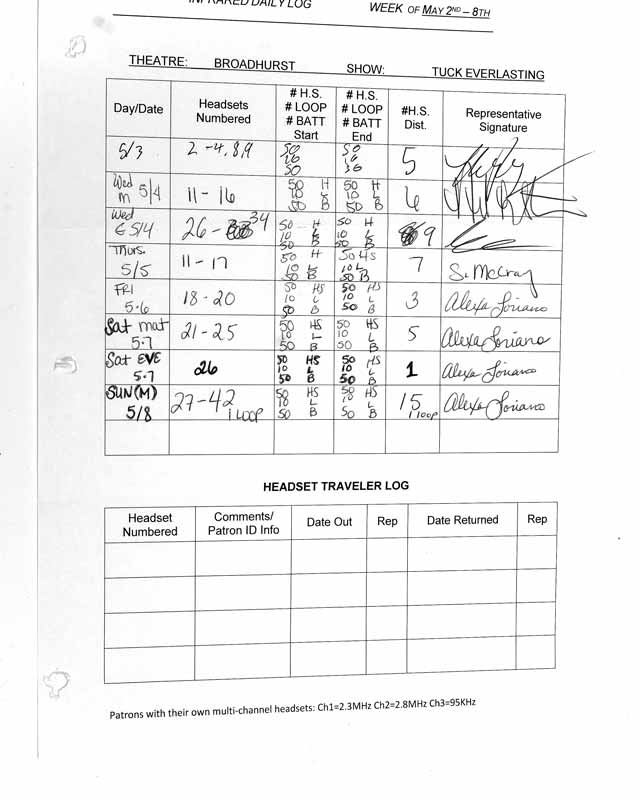 INFRARED DAILY LOG WEEK OF MAY 2ND – 8TH
THEATRE: BROADHURST SHOW: TUCK EVERLASTING
Day/Date Headsets Numbered # H.S. # LOOP # BATT Start # H.S. # LOOP # BATT End #H.S. Dist. Representative Signature
5/3 2 -4,8,9 50 50 50 5
Wed M 5/4 11-16 50 H 10 L 50 B 50 H 10 L 50 B 6
Wed E 5/4 26-34 50 H 10 L 50 B 50 H 10 L 50 B 9
Thurs. 5/5 11-17 50 H 10 L 50 B 50 HS 10 L 50 B 7 S. McCray
FRI 5.6 18-20 50 HS 10 L 50 B 50 HS 10 L 50 B 3 Alexa Soriano
Sat mat 5.7 21-25 50 HS 10 L 50 B 50 HS 10 L 50 B 5 Alexa Soriano
Sat EVE 5.7 26 50 HS 10 L 50 B 50 HS 10 L 50 B 1 Alexa Soriano
SUN(M) 5/8 27-42 1 LOOP 50 HS 10 L 50 B 50 HS 10 L 50 B 15 1 loop Alexa Soriano
HEADSET TRAVELER LOG
Headset Numbered Comments/ Patron ID Info Date Out Rep Date Returned Rep
Patrons with their own multi-channel headsets: Ch1=2.3MHz Ch2=2.8MHz Ch3=95KHz